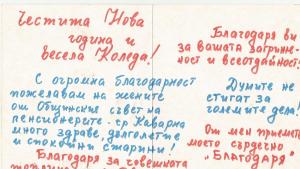 Честита Нова
година и
весела Коледа!
С огромна благодарност
пожелавам на жените
от Общинския съвет на
пенсионерите - гр. Каварна
много здраве, дълголетие
и спокойни старини!
Благодаря за грешката
Благодаря ви
за вашата загриже-
ност и всеотдайност!
Думите не
стигат за
големите дела!
От мен приемете
моето сърдечно
„БЛАГОДАРЯ"